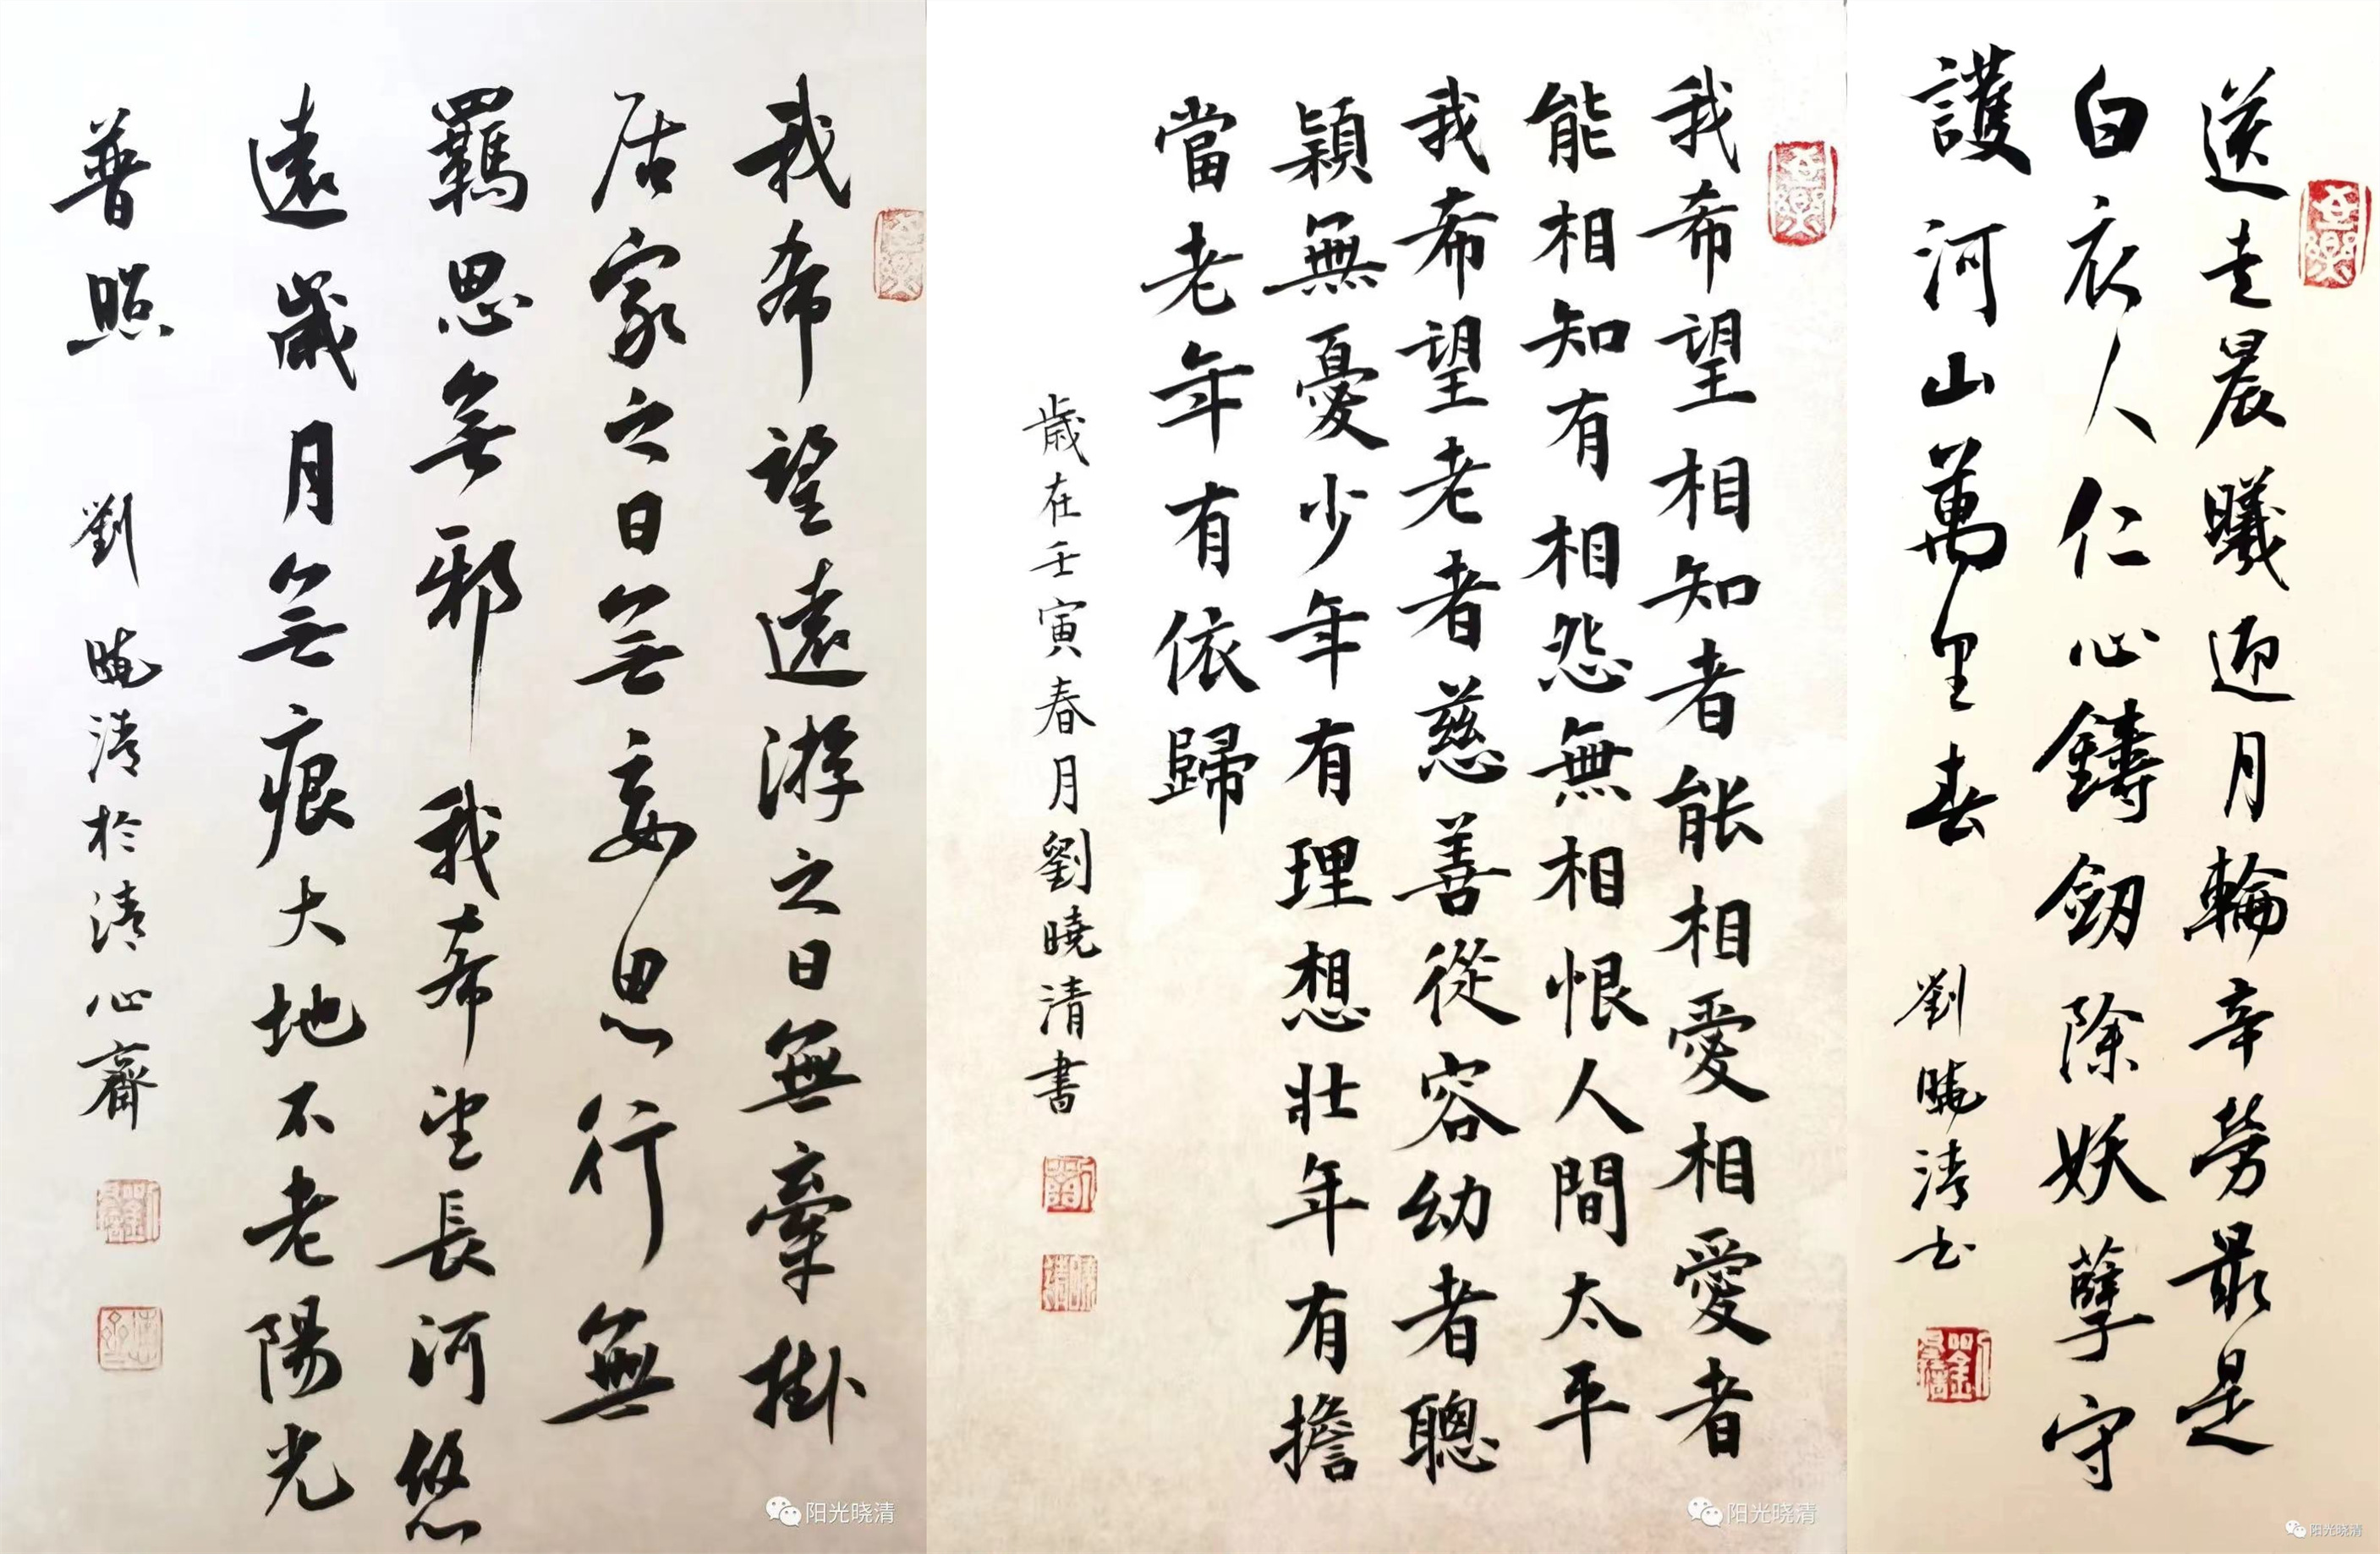 送走晨曦迎月輪辛勞最是
白衣人仁心鑄劒除妖孽守
護河山萬里春
劉曉清书
我希望相知者能相愛相愛者
能相知有相怨無相恨人間太平
我希望老者慈善從容幼者聰
穎無憂少年有理想壯年有擔
當老年有依歸
歲在壬寅春月劉曉清書
我希望遠游之日無牽掛
居家之日無妄思行無
羈思無邪我希望長河悠
遠歲月無痕大地不老陽光
普照
劉曉清於清心齋
阳光晓清
阳光晓清
阳光晓清